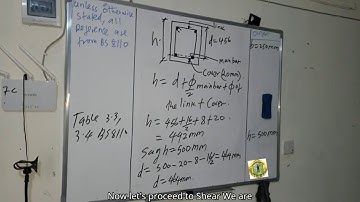 unless otherwise
stated, all
reference are
from BS 8110
Table 3.3,
3.4 BS8110
link
h
d=456
cover (20mm)
main bar
h = d + Φ/2 main bar + Φ of
the link + Cover.
h = 456 + 16/2 + 8 + 20
= 442mm
Say h = 500mm
d = 500-20-8-16/2 = 464mm
d = 464mm
Output
h=250mm
h=500mm
7c
Now let's proceed to Shear We are